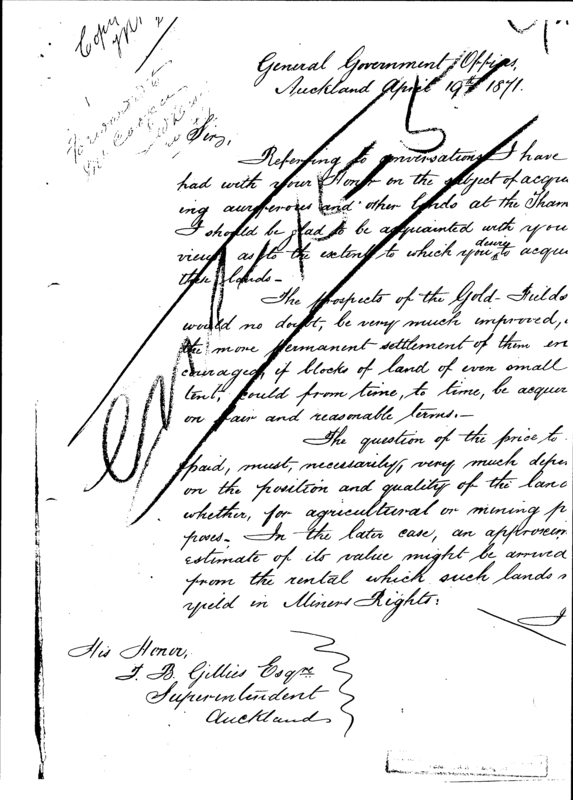 Copy
General Government Offices,
Auckland April 19th 1871.
Forwarded to
Mr
Sir,
Referring to conversations I have
had with your Honor on the subject of acqu
ing auriferous and other lands at the Tham
I should be glad to be acquainted with you
views as to the extent to which you desire to acqu
these lands.
The prospects of the Gold-Fields
would no doubt, be very much improved,
the more permanent settlement of them en
couraged, if blocks of land of even small
tent, could from time, to time, be acquir
on fair and reasonable terms.
The question of the price to
paid, must, necessarily, very much depe
on the position and quality of the land
whether, for agricultural or mining p
poses. In the later case, an approxim
estimate of its value might be arrived
from the rental which such lands
yield in Miners Rights:
I
His Honor,
T. B. Gillies Esqre
Superintendent
Auckland